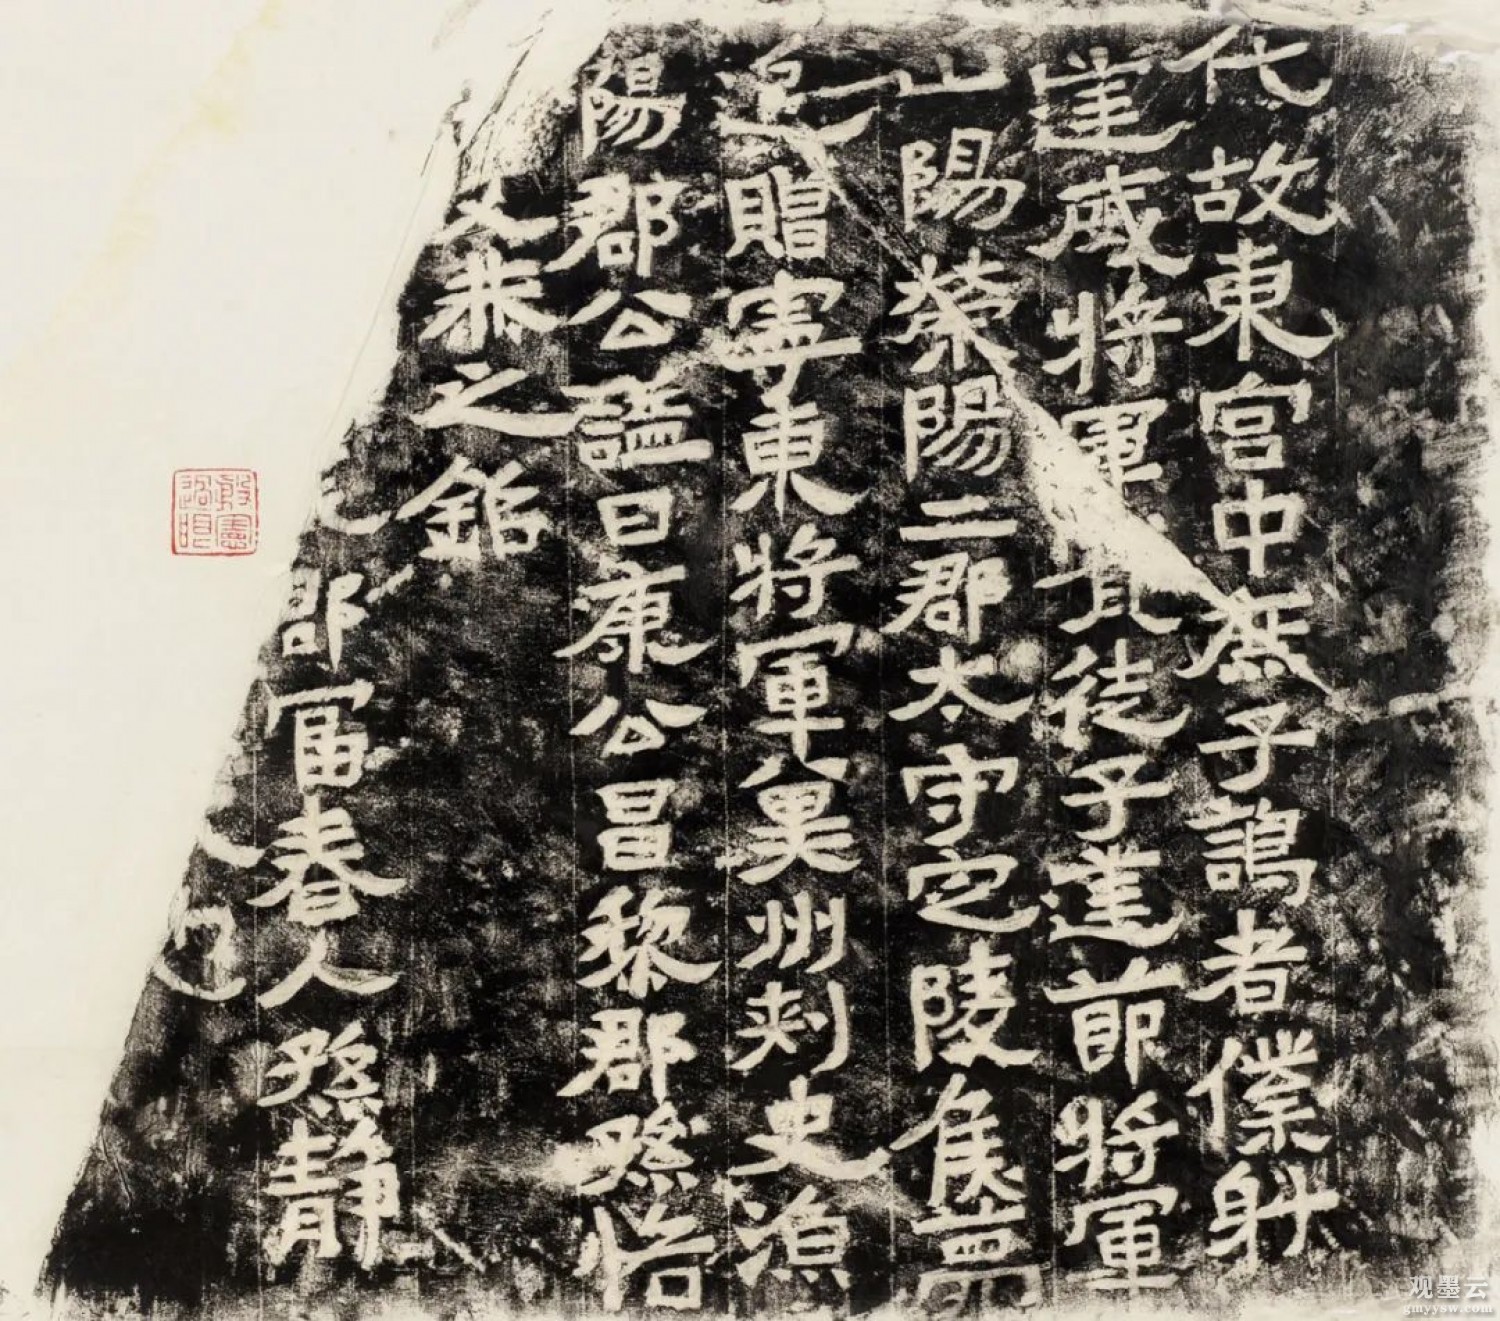 代故東宮中庶子謁者僕射
建威將軍徒子建節將軍
山陽滎陽二郡太守定陵侯薨
追贈寧東將軍冀州刺史漁
陽郡公謚曰康公昌黎郡孫恪
文恭之銘
郎富春人孫靜
殷憲過眼
观墨云
gmyysw.com